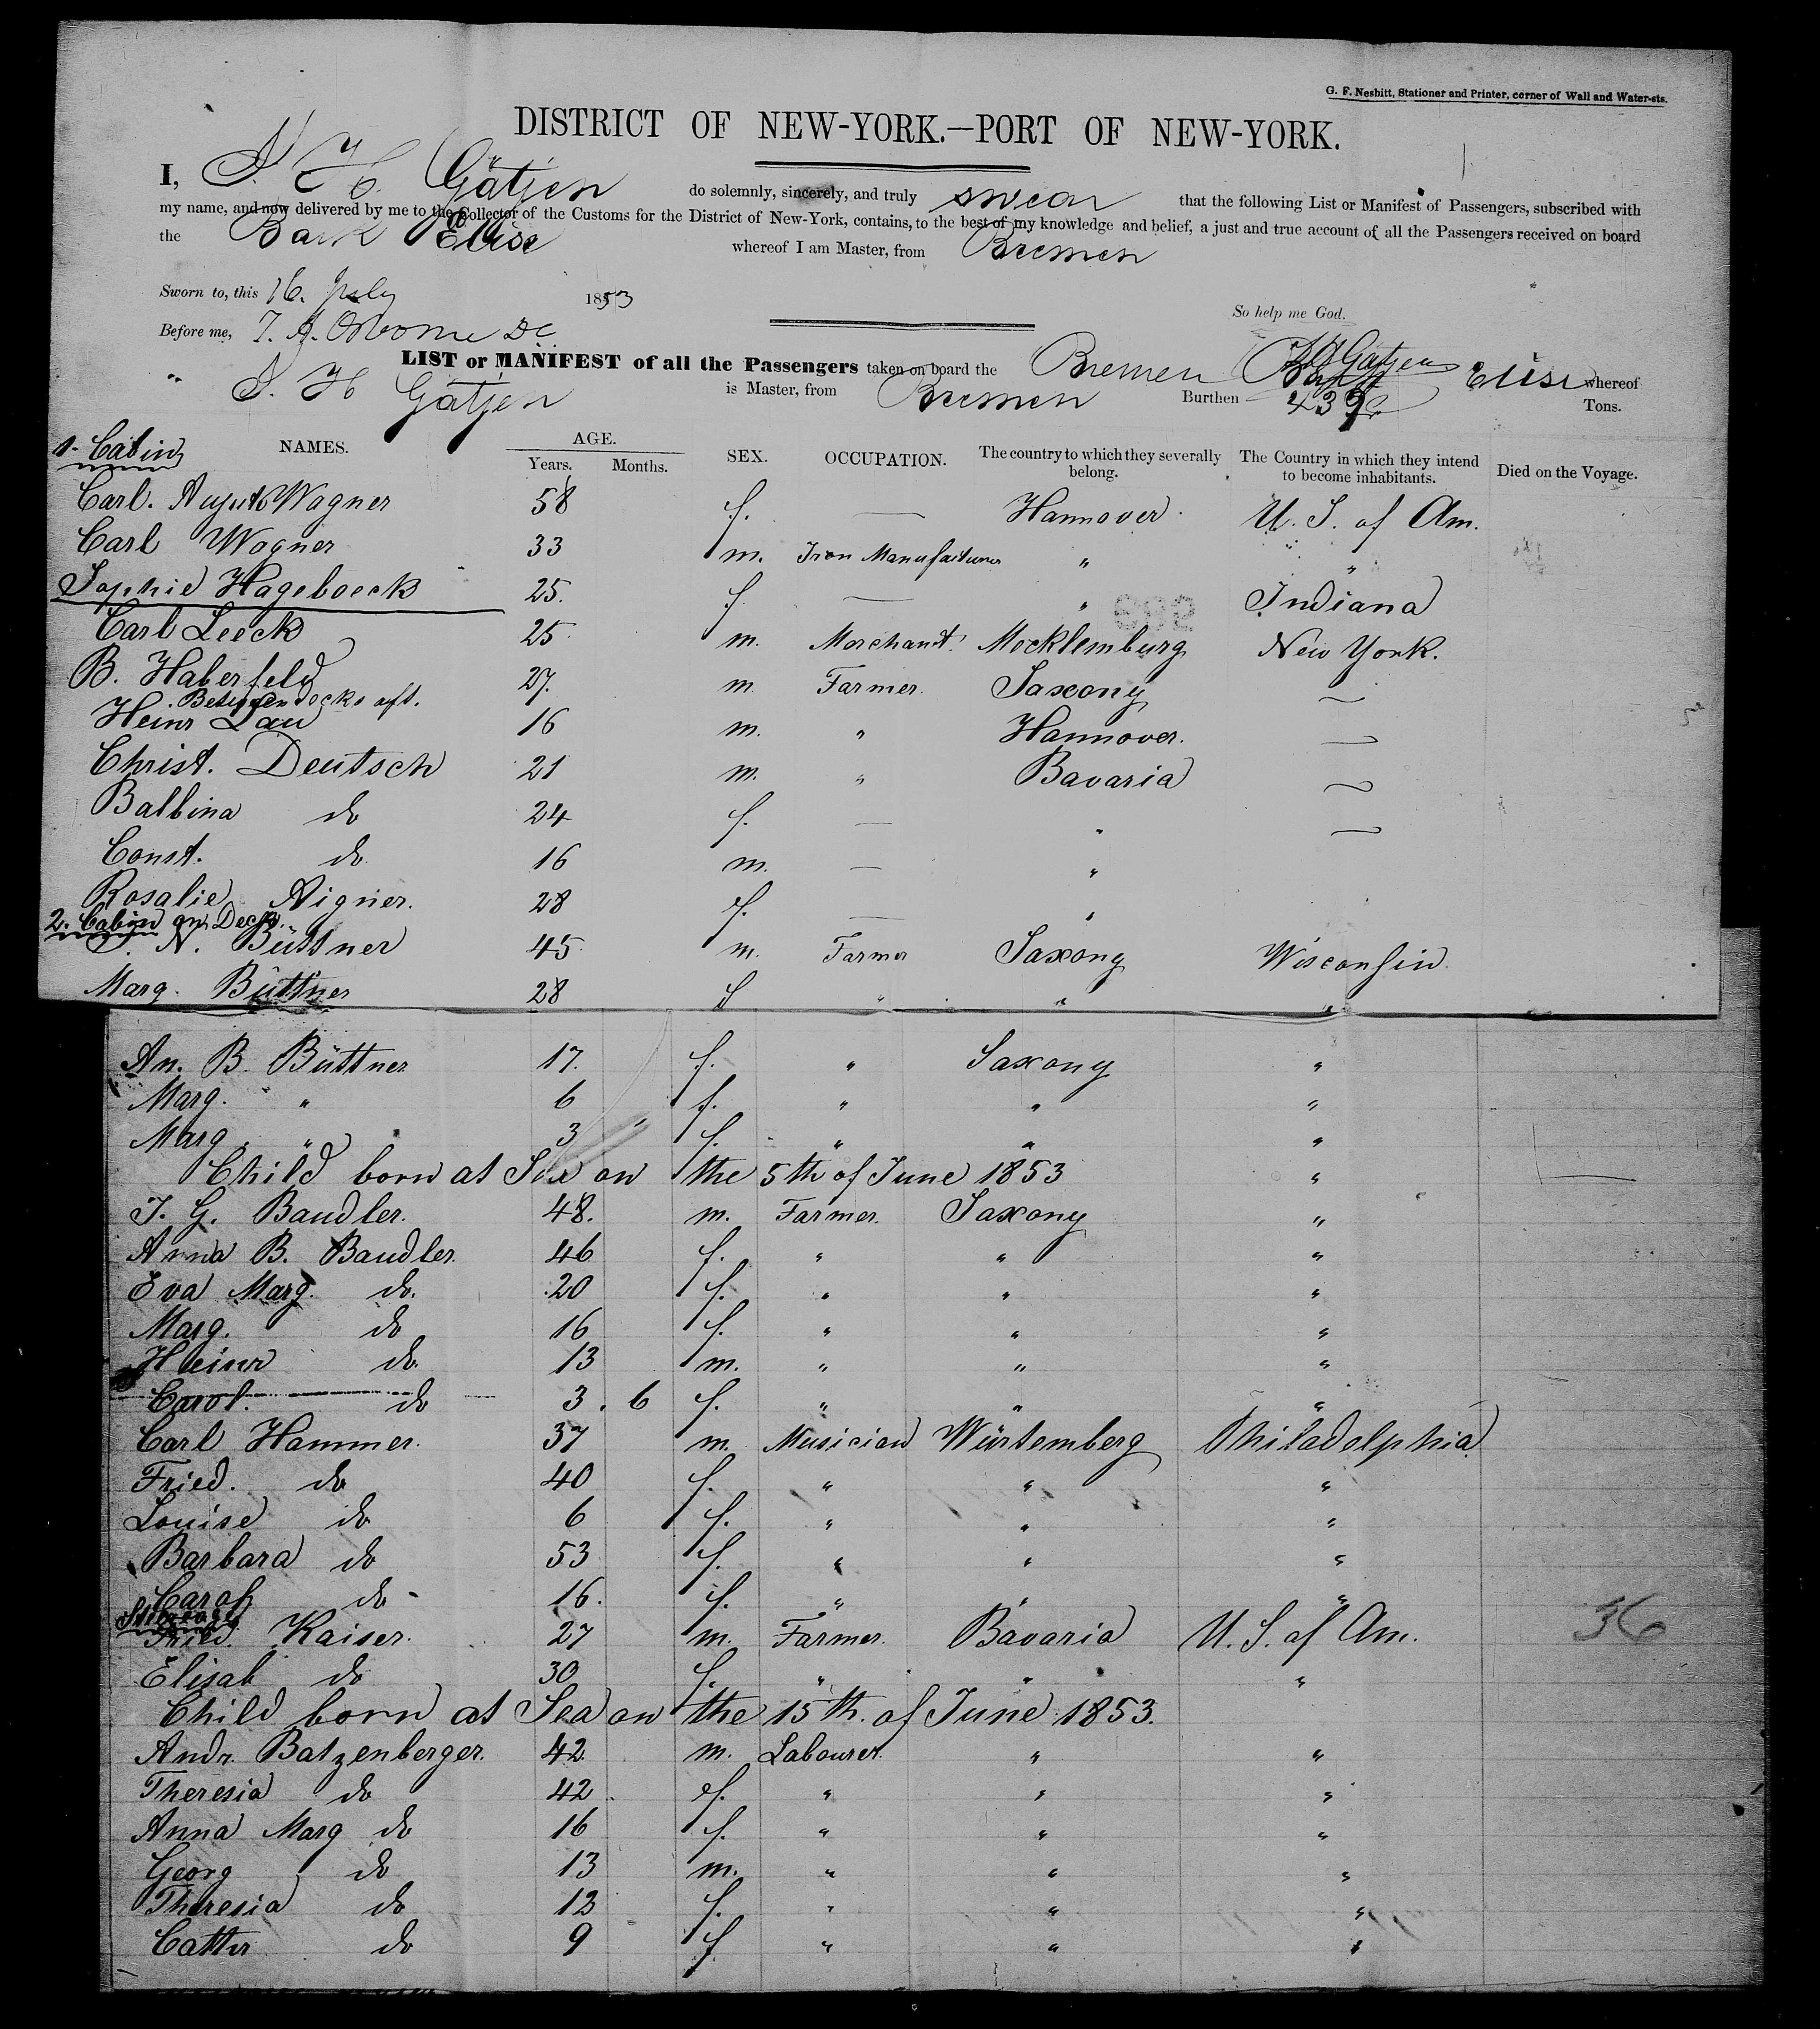 G. F. Nesbitt, Stationer and Printer, corner of Wall and Water-sts.
DISTRICT OF NEW-YORK.—PORT OF NEW-YORK.
I, J. H. Gätjen do solemnly, sincerely, and truly swear that the following List or Manifest of Passengers, subscribed with
my name, and now delivered by me to the Collector of the Customs for the District of New-York, contains, to the best of my knowledge and belief, a just and true account of all the Passengers received on board
the Bark Elise whereof I am Master, from Bremen
Sworn to, this 16. July 1853
So help me God.
Before me, Osborne DC
J H Gatjen
LIST or MANIFEST of all the Passengers taken on board the Bremen Bark Elise whereof
J. H Gätjen is Master, from Bremen Burthen Tons.
NAMES. AGE. Years. Months. SEX. OCCUPATION. The country to which they severally belong. The Country in which they intend to become inhabitants. Died on the Voyage.
1. Cabin
Carl. Wagner 58 f. — Hannover. U. S. of Am.
Carl Wagner 33 m. Iron Manufacturer " "
Sophie Hageboeck 25. f. — " Indiana
Carl Leeck 25 m. Merchant Mecklemburg New York.
B. Haberfeld 27. m. Farmer. Saxony —
Between decks aft.
Heinr Lau 16 m. " Hannover. —
Christ. Deutsch 21 m. " Bavaria —
Balbina do 24 f. — " —
Const. do 16 m. — "
Rosalie Aigner. 28 f. — "
2. Cabin on Deck.
N. Büttner 45 m. Farmer Saxony Wisconsin.
Marg. Büttner 28 f " " "
An. B. Büttner 17. f. " Saxony "
Marg. " 6 f. " " "
Marg. " 3 f. " " "
Child born at Sea on the 5th of June 1853 "
J. G. Baudler. 48. m. Farmer. Saxony "
Anna B. Baudler. 46 f. " " "
Eva Marg. do. 20 f. " " "
Marg. do 16 f. " " "
Heinr do. 13 m. " " "
Carol. do 3. 6 f. " " "
Carl Hammer. 37 m. Musician Würtemberg Philadelphia
Fried. do 40 f. " " "
Louise do 6 f. " " "
Barbara do 53 f. " " "
Carol do 16. f. " " "
Steerage
Fried. Kaiser. 27 m. Farmer. Bavaria U. S. of Am. 36
Elisab do 30 f. " " "
Child born at Sea on the 15th. of June 1853.
Andr. Batzenberger. 42 m. Labourer. " "
Theresia do 42. f. " " "
Anna Marg do 16 f. " " "
Georg do 13 m. " " "
Theresia do 12 f. " " "
Cathr do 9 f " " "